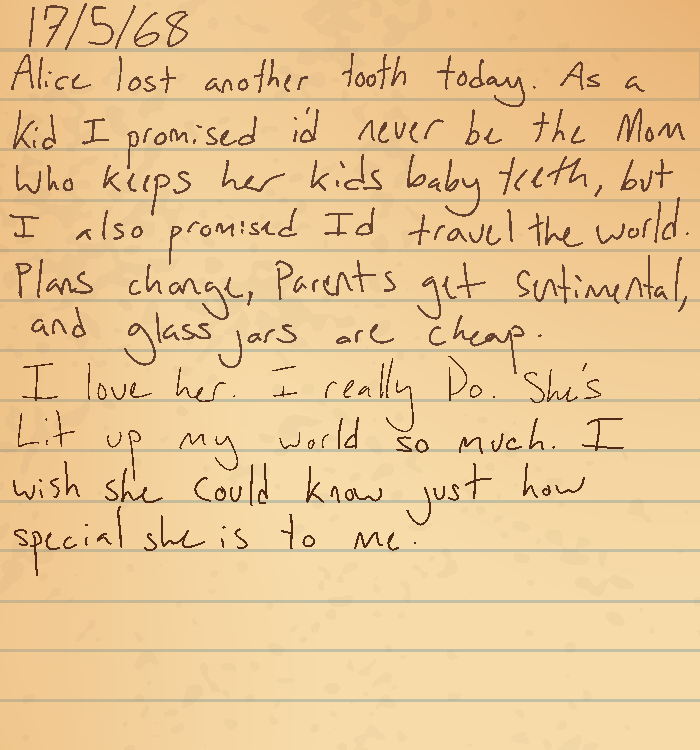 17/5/68
Alice lost another tooth today. As a
kid I promised i'd never be the Mom
who keeps her kids baby teeth, but
I also promised Id travel the world.
Plans change, Parents get sentimental,
and glass jars are cheap.
I love her. I really Do. She's
Lit up my world so much. I
wish she could know just how
special she is to me.